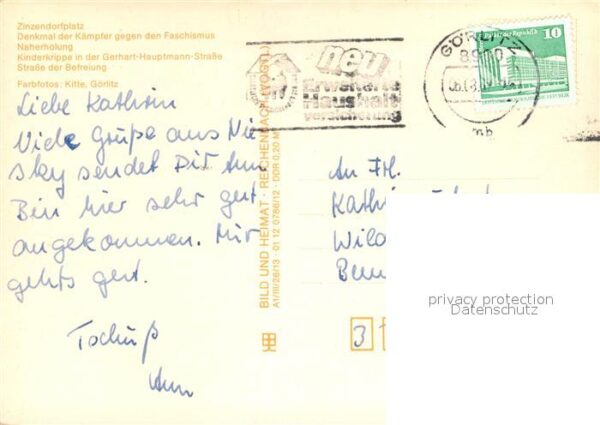 Zinzendorfplatz
Denkmal der Kämpfer gegen den Faschismus
Naherholung
Kinderkrippe in der Gerhart-Hauptmann-Straße
Straße der Befreiung
Farbfotos: Kitte, Görlitz
Liebe Kathrin
Viele Grüße aus Nie
sky sendet Dir
Bin hier sehr gut
angekommen. Mir
gehts gut.
Tschüß
BILD UND HEIMAT · REICHENBACH (VOGTL)
A1/III/26/13 · 01 12 0786/12 · DDR 0,20 M
neu
Erweiterte
Haushalt
versicherung
GÖRLITZ
8900
mb
10
An Frl.
Kath
Wil
3
privacy protection
Datenschutz